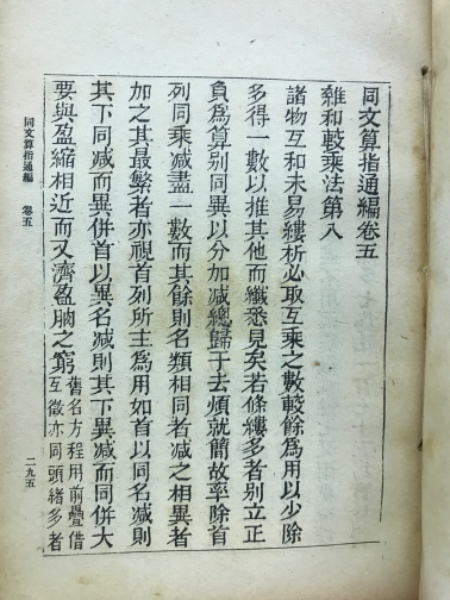 同文算指通編卷五
雜和較乘法第八
諸物互和未易縷析必取互乘之數較餘為用以少除
多得一數以推其他而纖悉見矣若條縷多者別立正
負為算別同異以分加減總歸于去煩就簡故率除首
列同乘減盡一數而其餘則名類相同者減之相異者
加之其最繁者亦視首列所主為用如首以同名減則
其下同減而異併首以異名減則其下異減而同併大
要與盈縮相近而又濟盈朒之窮舊名方程用前疊借
互徵亦同頭緒多者
同文算指通編
卷五
二九五